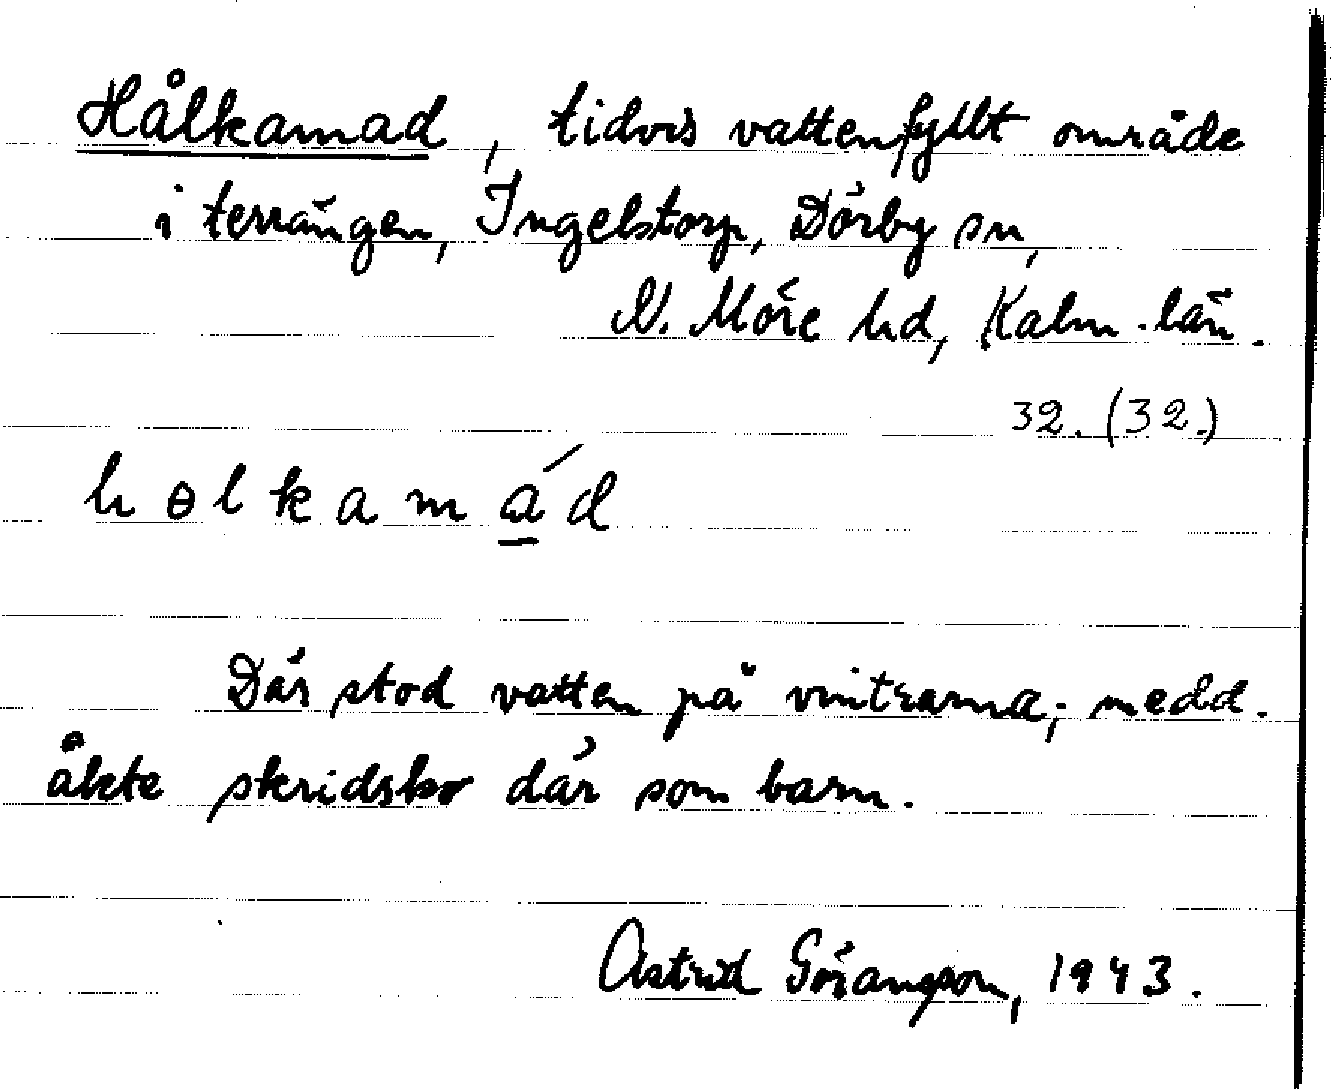 Hålkamad, tidvis vattenfyllt område
i terrängen, Ingelstorp, Dörby sn,
N. Möre hd, Kalm. län.
32. (32.)
hɵlkamád
Där stod vatten på vintrarna; medd.
åkte skridsko där som barn.
Astrid Göransson, 1943.